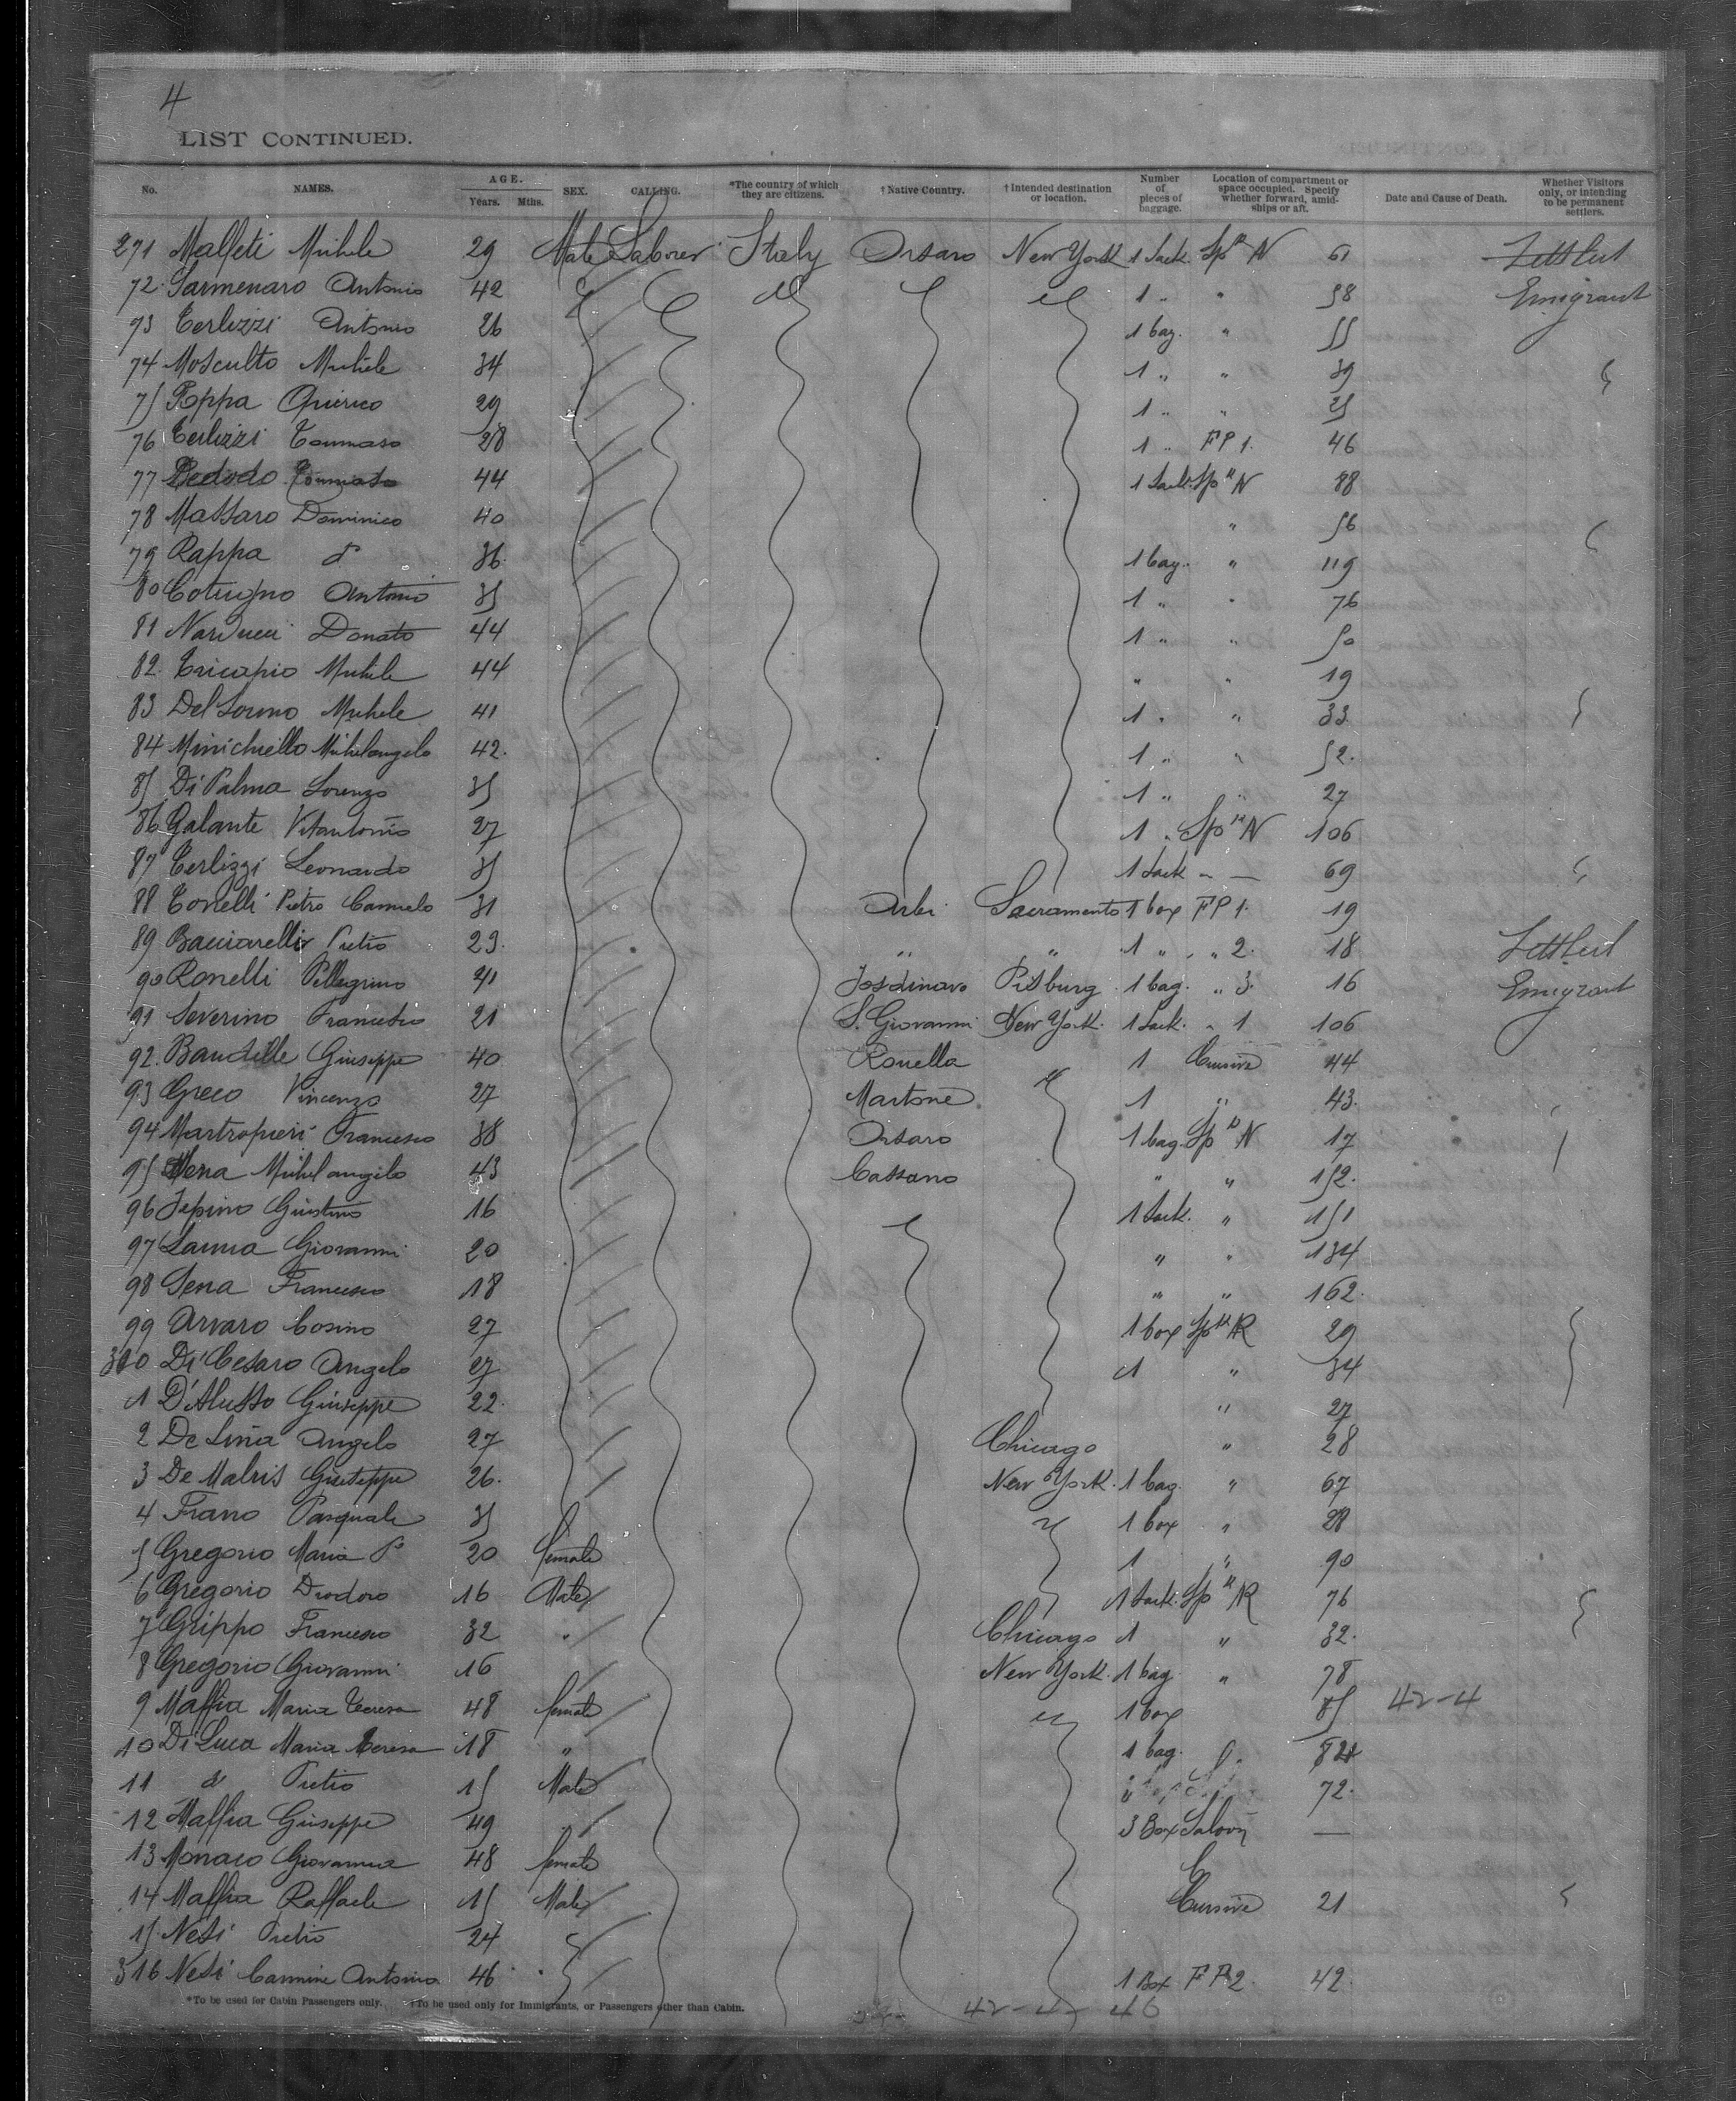 4
LIST CONTINUED.
No. NAMES. AGE. Years. Mths. SEX. CALLING. *The country of which they are citizens. † Native Country. † Intended destination or location. Number of pieces of baggage. Location of compartment or space occupied. Specify whether forward, amidships or aft. Date and Cause of Death. Whether Visitors only, or intending to be permanent settlers.
271 Malfeti Michele 29 Male Laborer Italy Orsaro New York 1 Sack Sp N 61
72 Antonio 42 1 " " 58 Emigrant
73 Terlizzi Antonio 26 1 bag. " 55
74 Moscutto Michele 34 1 " " 39
75 Poppa Quirico 29 1 " " 25
76 Terlizzi Tommaso 28 1 " FP 1. 46
77 44 1 Sack Sp N 88
78 Massaro Dominico 40 " 56
79 Rappa d° 36 1 bag. " 119
80 Cotugno Antonio 35 1 " " 76
81 Narducci Donato 44 1 " " 50
82 Tricapio Michele 44 " " 19
83 Del Sorino Michele 41 1 " " 33
84 Minichiello Michelangelo 42. 1 " " 52.
85 Di Palma Lorenzo 35 1 " " 27
86 Galante Vitantonio 27 1 " Sp N 106
87 Terlizzi Leonardo 35 1 Sack " — 69
88 Tonelli Pietro Carmelo 31 Sacramento 1 box FP 1. 19
89 Bacciarelli Pietro 23. " " 1 " " 2. 18
90 Ronelli Pellegrino 41 Pitsburg 1 bag. " 3. 16 Emigrant
91 Severino Francesco 21 S. Giovanni New York. 1 Sack. " 1 106
92. Giuseppe 40 Ronella 1 44
93 Greco Vincenzo 27 Martone 1 " 43.
94 Mastropieri Francesco 38 Orsaro 1 bag. Sp N 17
95 Michelangelo 43 Cassano " " 152.
96 Giustino 16 1 Sack. " 151
97 Lauria Giovanni 20 " " 134
98 Sena Francesco 18 " " 162.
99 Arvaro Cosimo 27 1 box Sp R 29
300 Di Cesaro Angelo 27 1 " 34
1 D'Alusso Giuseppe 22. " 27
2 De Luria Angelo 27 Chicago " 28
3 De Malris Giuseppe 26. New York. 1 bag. " 67
4 Frano Pasquale 35 1 box " 28
5 Gregorio Maria 20 female 1 " 90
6 Gregorio Diodoro 16 Male 1 Sack. Sp R 76
7 Grippo Francesco 32 " Chicago 1 " 32.
8 Gregorio Giovanni 16 New York. 1 bag " 78
9 Maffia Maria Teresa 48 female 1 box 85 42-4
10 Di Luca Maria Teresa 18 " 1 bag.
11 d° Pietro 15 Male 72.
12 Maffia Giuseppe 49 " 3 Box Saloon —
13 Monaco Giovanna 48 female
14 Maffia Raffaele 15 Male 21
15 Nesi Pietro 24
316 Nesi Carmine Antonio 46 1 Box FP 2. 42.
*To be used for Cabin Passengers only. †To be used only for Immigrants, or Passengers other than Cabin.
42-4- 46